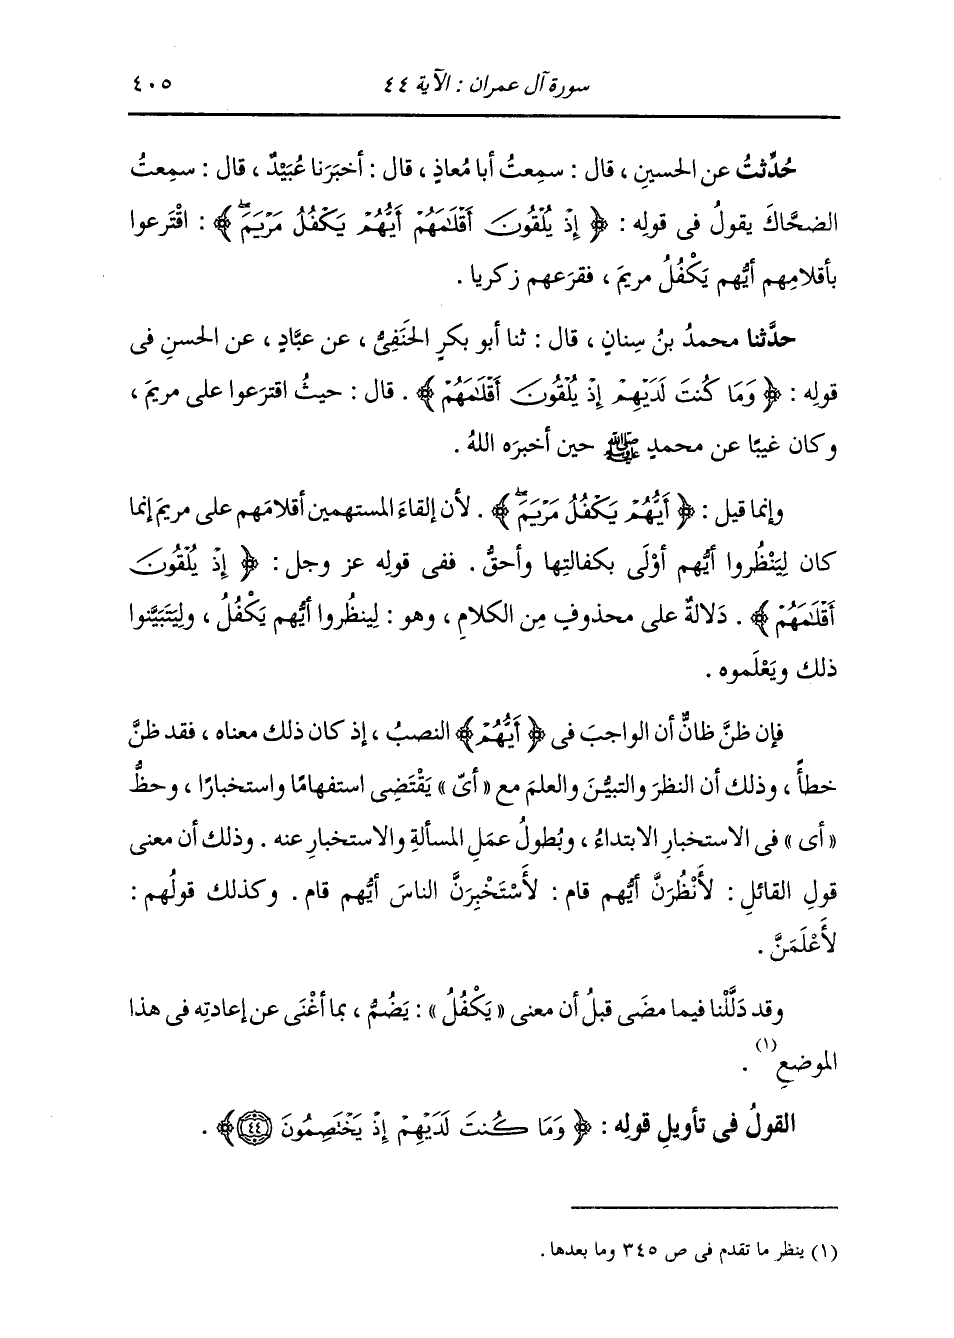 سورة آل عمران : الآية ٤٤
٤٠٥
حُدِّثتُ عن الحسينِ ، قال : سمِعتُ أبا مُعاذٍ ، قال : أخبَرَنا عُبَيْدٌ ، قال : سمِعتُ
الضحَّاكَ يقولُ فى قولِه : ﴿ إِذْ يُلْقُونَ أَقْلَٰمَهُمْ أَيُّهُمْ يَكْفُلُ مَرْيَمَۖ ﴾ : اقْتَرعوا
بأقلامِهم أيُّهم يَكْفُلُ مريمَ ، فقرَعهم زكريا .
حدَّثنا محمدُ بنُ سِنانٍ ، قال : ثنا أبو بكرٍ الحَنَفِىُّ ، عن عبَّادٍ ، عن الحسنِ فى
قولِه : ﴿ وَمَا كُنتَ لَدَيْهِمْ إِذْ يُلْقُونَ أَقْلَٰمَهُمْ ﴾ . قال : حيثُ اقترَعوا على مريمَ ،
وكان غيبًا عن محمدٍ ﷺ حين أخبرَه اللهُ .
وإنما قيل : ﴿ أَيُّهُمْ يَكْفُلُ مَرْيَمَۖ ﴾ . لأن إلقاءَ المستهمين أقلامَهم على مريمَ إنما
كان لِيَنْظُروا أيُّهم أوْلَى بكفالتِها وأحقُّ . ففى قولِه عز وجل : ﴿ إِذْ يُلْقُونَ
أَقْلَٰمَهُمْ ﴾ . دَلالةٌ على محذوفٍ مِن الكلامِ ، وهو : لِينظُروا أيُّهم يَكْفُلُ ، ولِيَتَبَيَّنوا
ذلك ويَعْلَموه .
فإن ظنَّ ظانٌّ أن الواجبَ فى ﴿ أَيُّهُمْ ﴾ النصبُ ، إذ كان ذلك معناه ، فقد ظنَّ
خطأً ، وذلك أن النظرَ والتبيُّنَ والعلمَ مع « أىّ » يَقْتَضِى استفهامًا واستخبارًا ، وحظُّ
« أى » فى الاستخبارِ الابتداءُ ، وبُطولُ عمَلِ المسألةِ والاستخبارِ عنه . وذلك أن معنى
قولِ القائلِ : لأَنْظُرَنَّ أيُّهم قام : لأَسْتَخْبِرَنَّ الناسَ أيُّهم قام . وكذلك قولُهم :
لأَعْلَمَنَّ .
وقد دَلَّلْنا فيما مضَى قبلُ أن معنى « يَكْفُلُ » : يَضُمُّ ، بما أغْنَى عن إعادتِه فى هذا
الموضعِ (١) .
القولُ فى تأويلِ قولِه : ﴿ وَمَا كُنتَ لَدَيْهِمْ إِذْ يَخْتَصِمُونَ ٤٤ ﴾ .
(١) ينظر ما تقدم فى ص ٣٤٥ وما بعدها .